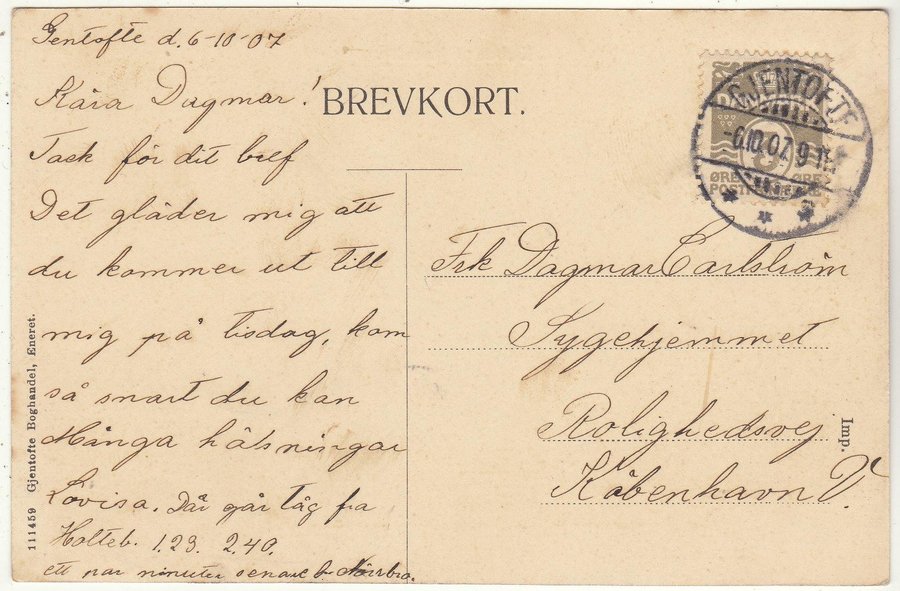 Gentofte d. 6-10-07
Kära Dagmar!
Tack för dit bref
Det gläder mig att
du kommer ut till
mig på tisdag, kom
så snart du kan
Många hälsningar
Lovisa. Där går tåg fra
Holteb. 1.23. 2.40.
ett par minuter senare Nörrbro.
BREVKORT.
GJENTOFTE
-6.10.07. 9
ØRE ØRE
POST
Frk Dagmar Carlström
Sygehjemmet
Rolighedsvej
København V.
111459 Gjentofte Boghandel, Eneret.
Imp.